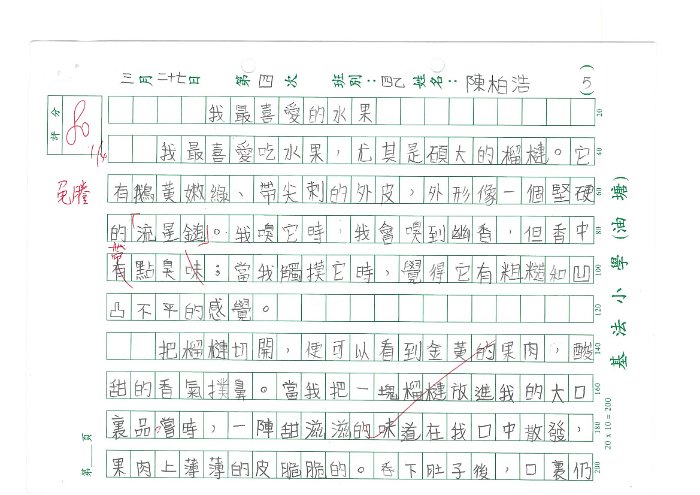 三月二十七日 第四次 班別：四乙 姓名：陳柏浩 (5)
評分
80
1/4
免謄
我最喜愛的水果
我最喜愛吃水果，尤其是碩大的榴槤。它
有鵝黃嫩綠、帶尖刺的外皮，外形像一個堅硬
的「流星鎚」。我嗅它時，我會嗅到幽香，但香中
帶
有點臭味；當我觸摸它時，覺得它有粗糙和凹
凸不平的感覺。
把榴槤切開，便可以看到金黃的果肉，酸
甜的香氣撲鼻。當我把一塊榴槤放進我的大口
裏品嘗時，一陣甜滋滋的味道在我口中散發，
果肉上薄薄的皮脆脆的。吞下肚子後，口裏仍
20
40
60
80
100
120
140
160
180
200
基法小學（油塘）
20 x 10 = 200
第 頁